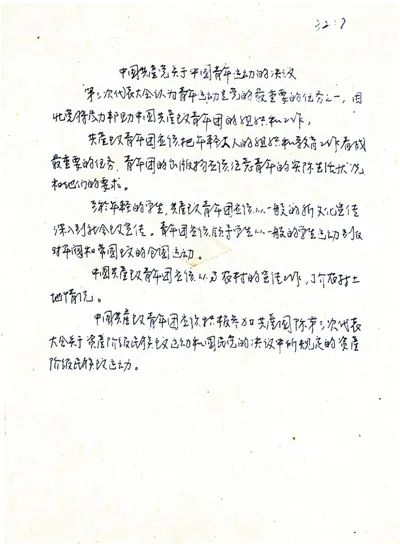 32:7
中国共产党关于中国青年运动的决议
第三次代表大会认为青年运动是党的最重要的任务之一，因
此党将尽力帮助中国共产主义青年团的组织和工作。
共产主义青年团应该把年轻工人的组织和教育工作看成
最重要的任务，青年团的出版物应该注意青年的实际生活状况
和他们的要求。
对于年轻的学生，共产主义青年团应该从一般的新文化宣传
深入到社会主义宣传。青年团应该领导学生从一般的学生运动到反
对军阀和帝国主义的合国运动。
中国共产主义青年团应该从事农村的宣传工作，了解农村土
地情况。
中国共产主义青年团应该积极参加共产国际第三次代表
大会关于资产阶级民族主义运动和国民党的决议中所规定的资产
阶级民族主义运动。